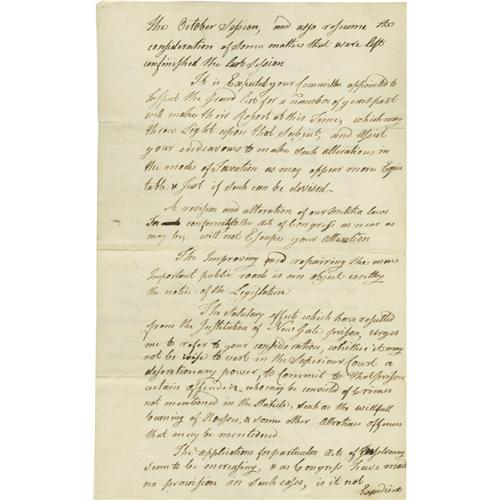 the October Session, and also resume the
consideration of some matters that were left
unfinished the last Session
It is Expected your Committee appointed to
the Grand list for a number of years past
will make their Report at this Time, which may
throw Light upon that Subject, and assist
your endeavours to make such alterations in
the mode of Taxation as may appear more Equi
table & Just if such can be devised.
A revision and alteration of our militia laws
conform to the Act of Congress as near as
may be, will not Escape your Attention
The Improving and repairring the more
Important public roads is an object worthy
the notice of the Legislature
The Salutary effects which have resulted
from the Institution of New Gate prison, urges
me to refer to your consideration, whether it may
not be wise to vest in the Superiour Court a
discretionary power, to commit to that prison
certain offenders who may be convicted of Crimes
not mentioned in the Statute, such as the willfull
burning of Houses, & some other Atrotious offences
that may be mentioned
The applications for particular Acts of Insolvency
seem to be encreasing, & as Congress have made
no provision in such cases, is it not
Expedient